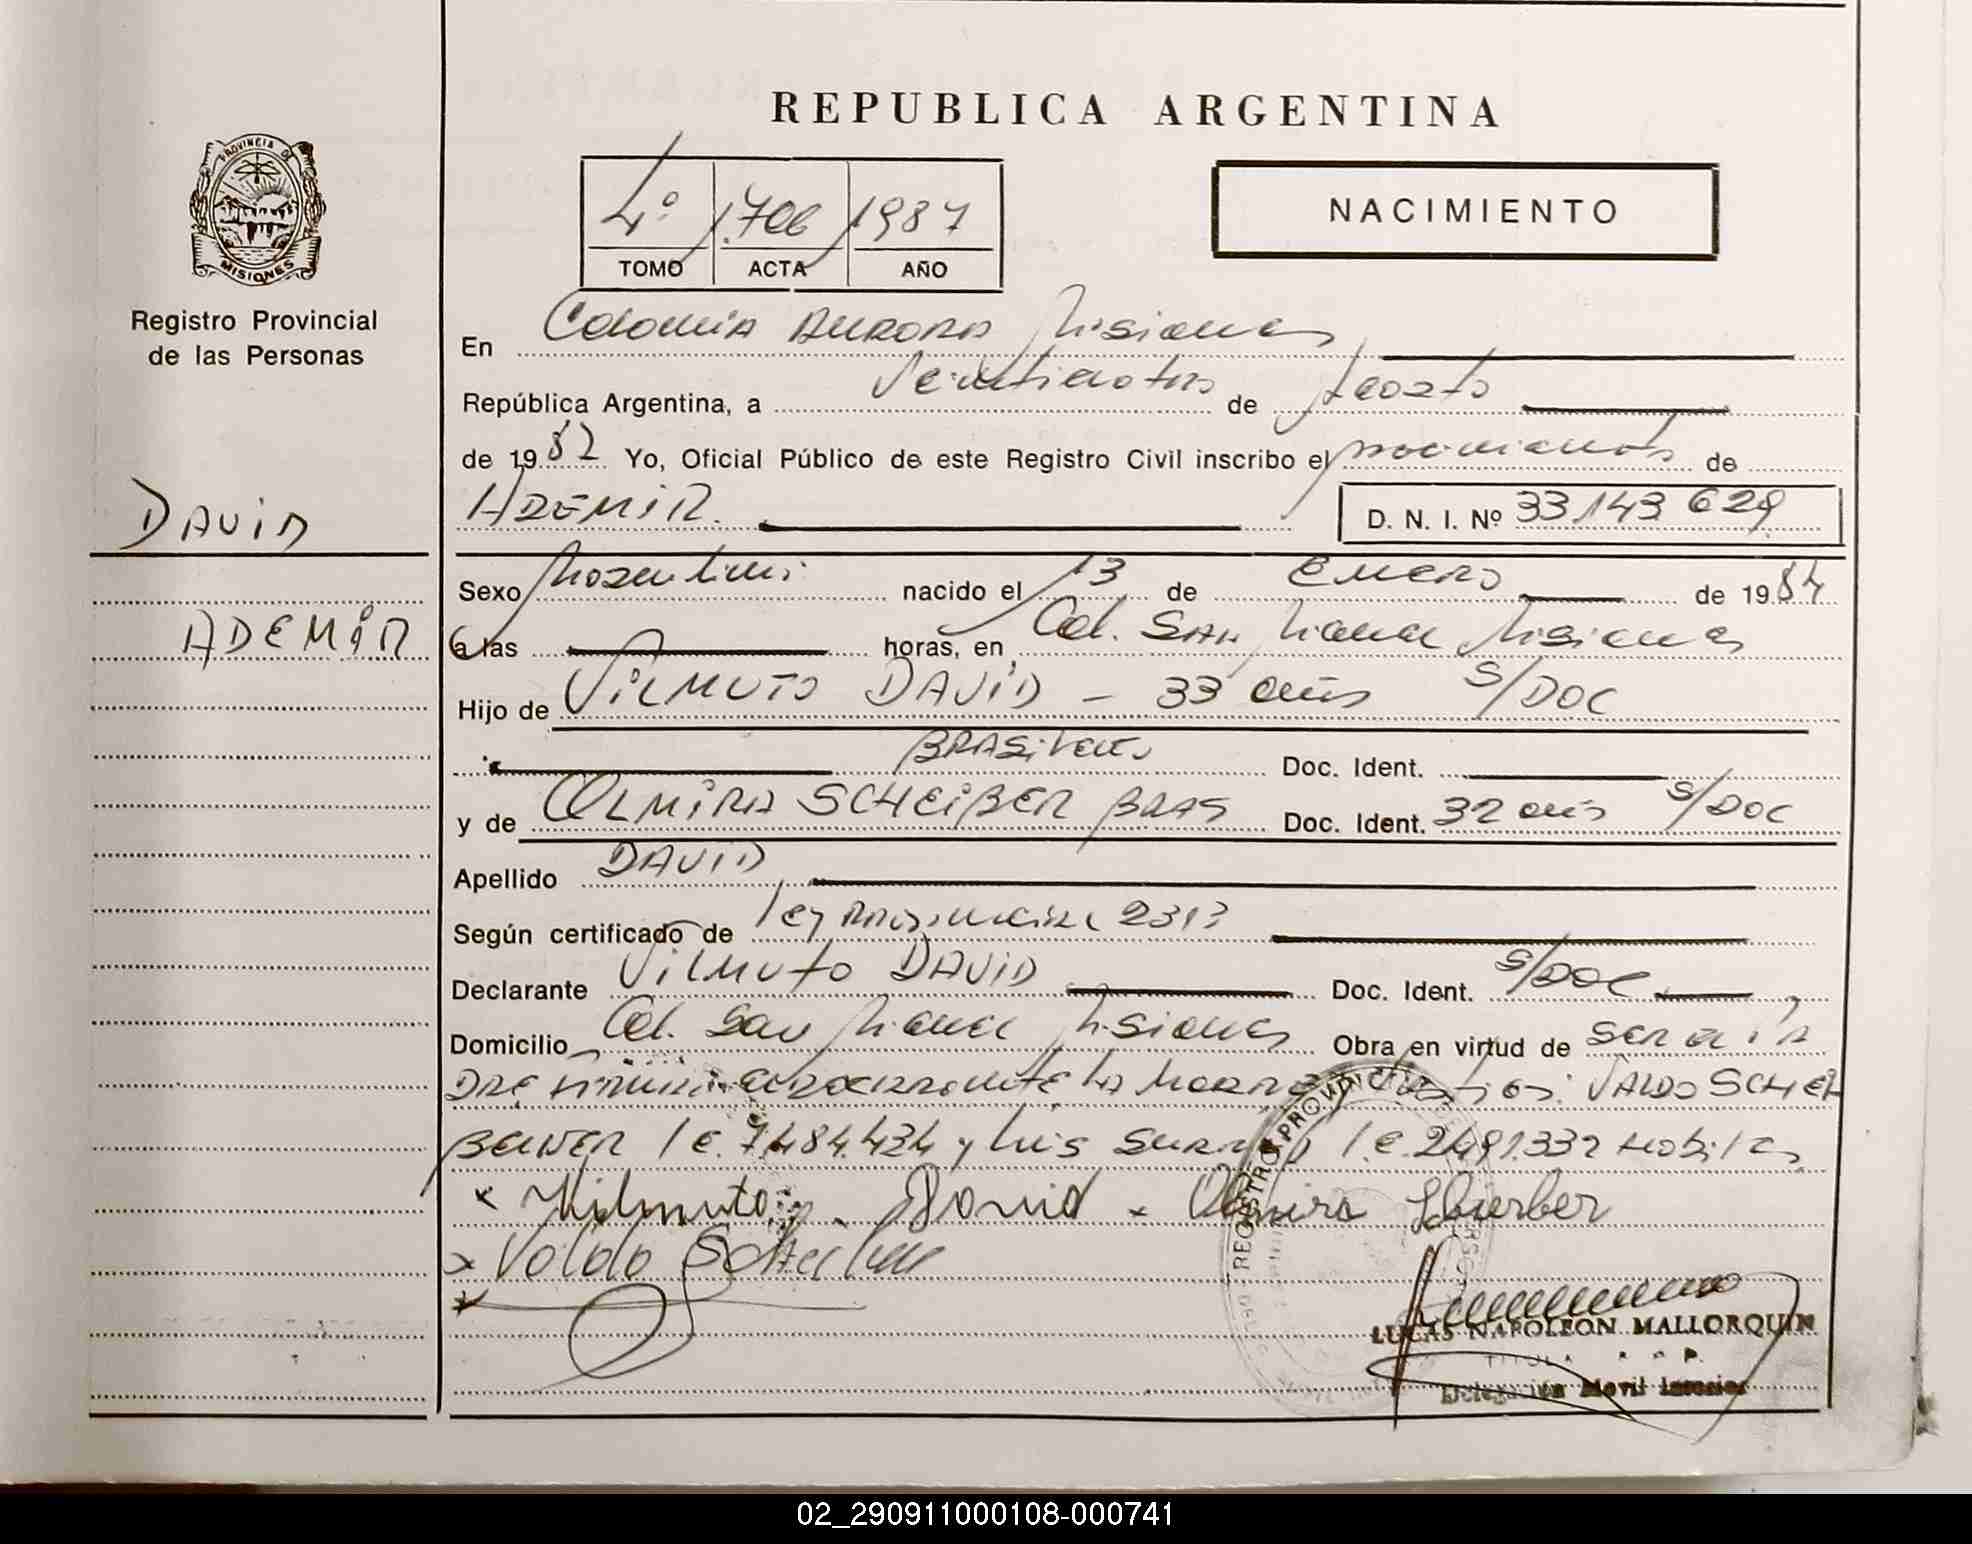 REPUBLICA ARGENTINA
PROVINCIA DE
MISIONES
Registro Provincial
de las Personas
4º 1.706 1987
TOMO ACTA AÑO
NACIMIENTO
En Colonia Aurora Misiones
República Argentina, a Veintiocho de Agosto
de 1987 Yo, Oficial Público de este Registro Civil inscribo el nacimiento de
ADEMIR. D. N. I. Nº 33.143.629
DAVID
ADEMIR
Sexo Masculino nacido el 13 de Enero de 1984
a las horas, en Col. San Miguel Misiones
Hijo de VILMUTO DAVID - 33 años S/DOC
BRASILEÑO Doc. Ident.
y de OLMIRA SCHEIBER BRAS Doc. Ident. 32 años S/DOC
Apellido DAVID
Según certificado de ley Provincial 2313
Declarante VILMUTO DAVID Doc. Ident. S/DOC
Domicilio Col. San Miguel Misiones Obra en virtud de ser el PA
DRE la MADRE VALDO SCHEI
l e. 7.484.434 y Luis l.e. 2.491.332
x Vilmuto David x Olmira Scheiber
x Valdo
REGISTRO PROVINCIAL
LUCAS NAPOLEON MALLORQUIN
TITULAR R P
Delegación Movil Interior
02_290911000108-000741